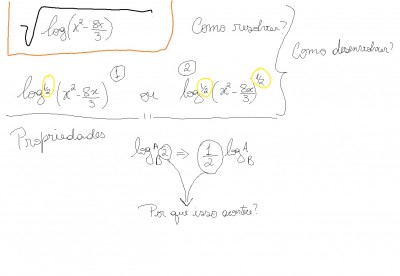 √log(x² - 8x/3)
Como resolver?
Como desenvolver?
① ②
log^{1/2}(x² - 8x/3) ou log^{1/2}(x² - 8x/3)^{1/2}
Propriedades
log_{B^2}^A ⇒ 1/2 log_B^A
Por que isso acontece?